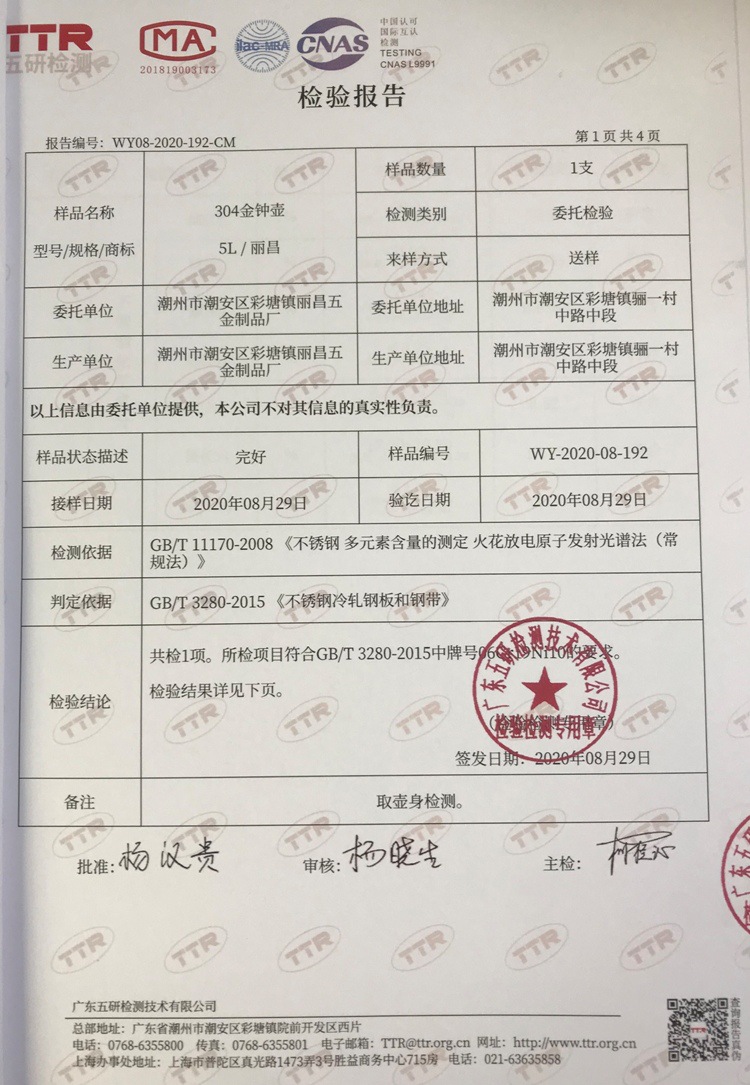 TTR
五研检测
MA
201819003173
ilac-MRA
CNAS
中国认可
国际互认
检测
TESTING
CNAS L9991
检验报告
报告编号：WY08-2020-192-CM
第 1 页 共 4 页
样品名称
型号/规格/商标
304金钟壶
5L / 丽昌
样品数量
1支
检测类别
委托检验
来样方式
送样
委托单位
潮州市潮安区彩塘镇丽昌五
金制品厂
委托单位地址
潮州市潮安区彩塘镇骊一村
中路中段
生产单位
潮州市潮安区彩塘镇丽昌五
金制品厂
生产单位地址
潮州市潮安区彩塘镇骊一村
中路中段
以上信息由委托单位提供，本公司不对其信息的真实性负责。
样品状态描述
完好
样品编号
WY-2020-08-192
接样日期
2020年08月29日
验讫日期
2020年08月29日
检测依据
GB/T 11170-2008 《不锈钢 多元素含量的测定 火花放电原子发射光谱法（常
规法）》
判定依据
GB/T 3280-2015 《不锈钢冷轧钢板和钢带》
检验结论
共检1项。所检项目符合GB/T 3280-2015中牌号06Cr19Ni10的要求。
检验结果详见下页。
广东五研检测技术有限公司
检验检测专用章
签发日期：2020年08月29日
备注
取壶身检测。
批准：杨汉贵
审核：杨晓生
主检：
广东五研检测技术有限公司
总部地址：广东省潮州市潮安区彩塘镇院前开发区西片
电话：0768-6355800 传真：0768-6355801 电子邮箱：TTR@ttr.org.cn 网址：http://www.ttr.org.cn
上海办事处地址：上海市普陀区真光路1473弄3号胜益商务中心715房 电话：021-63635858
查询报告真伪